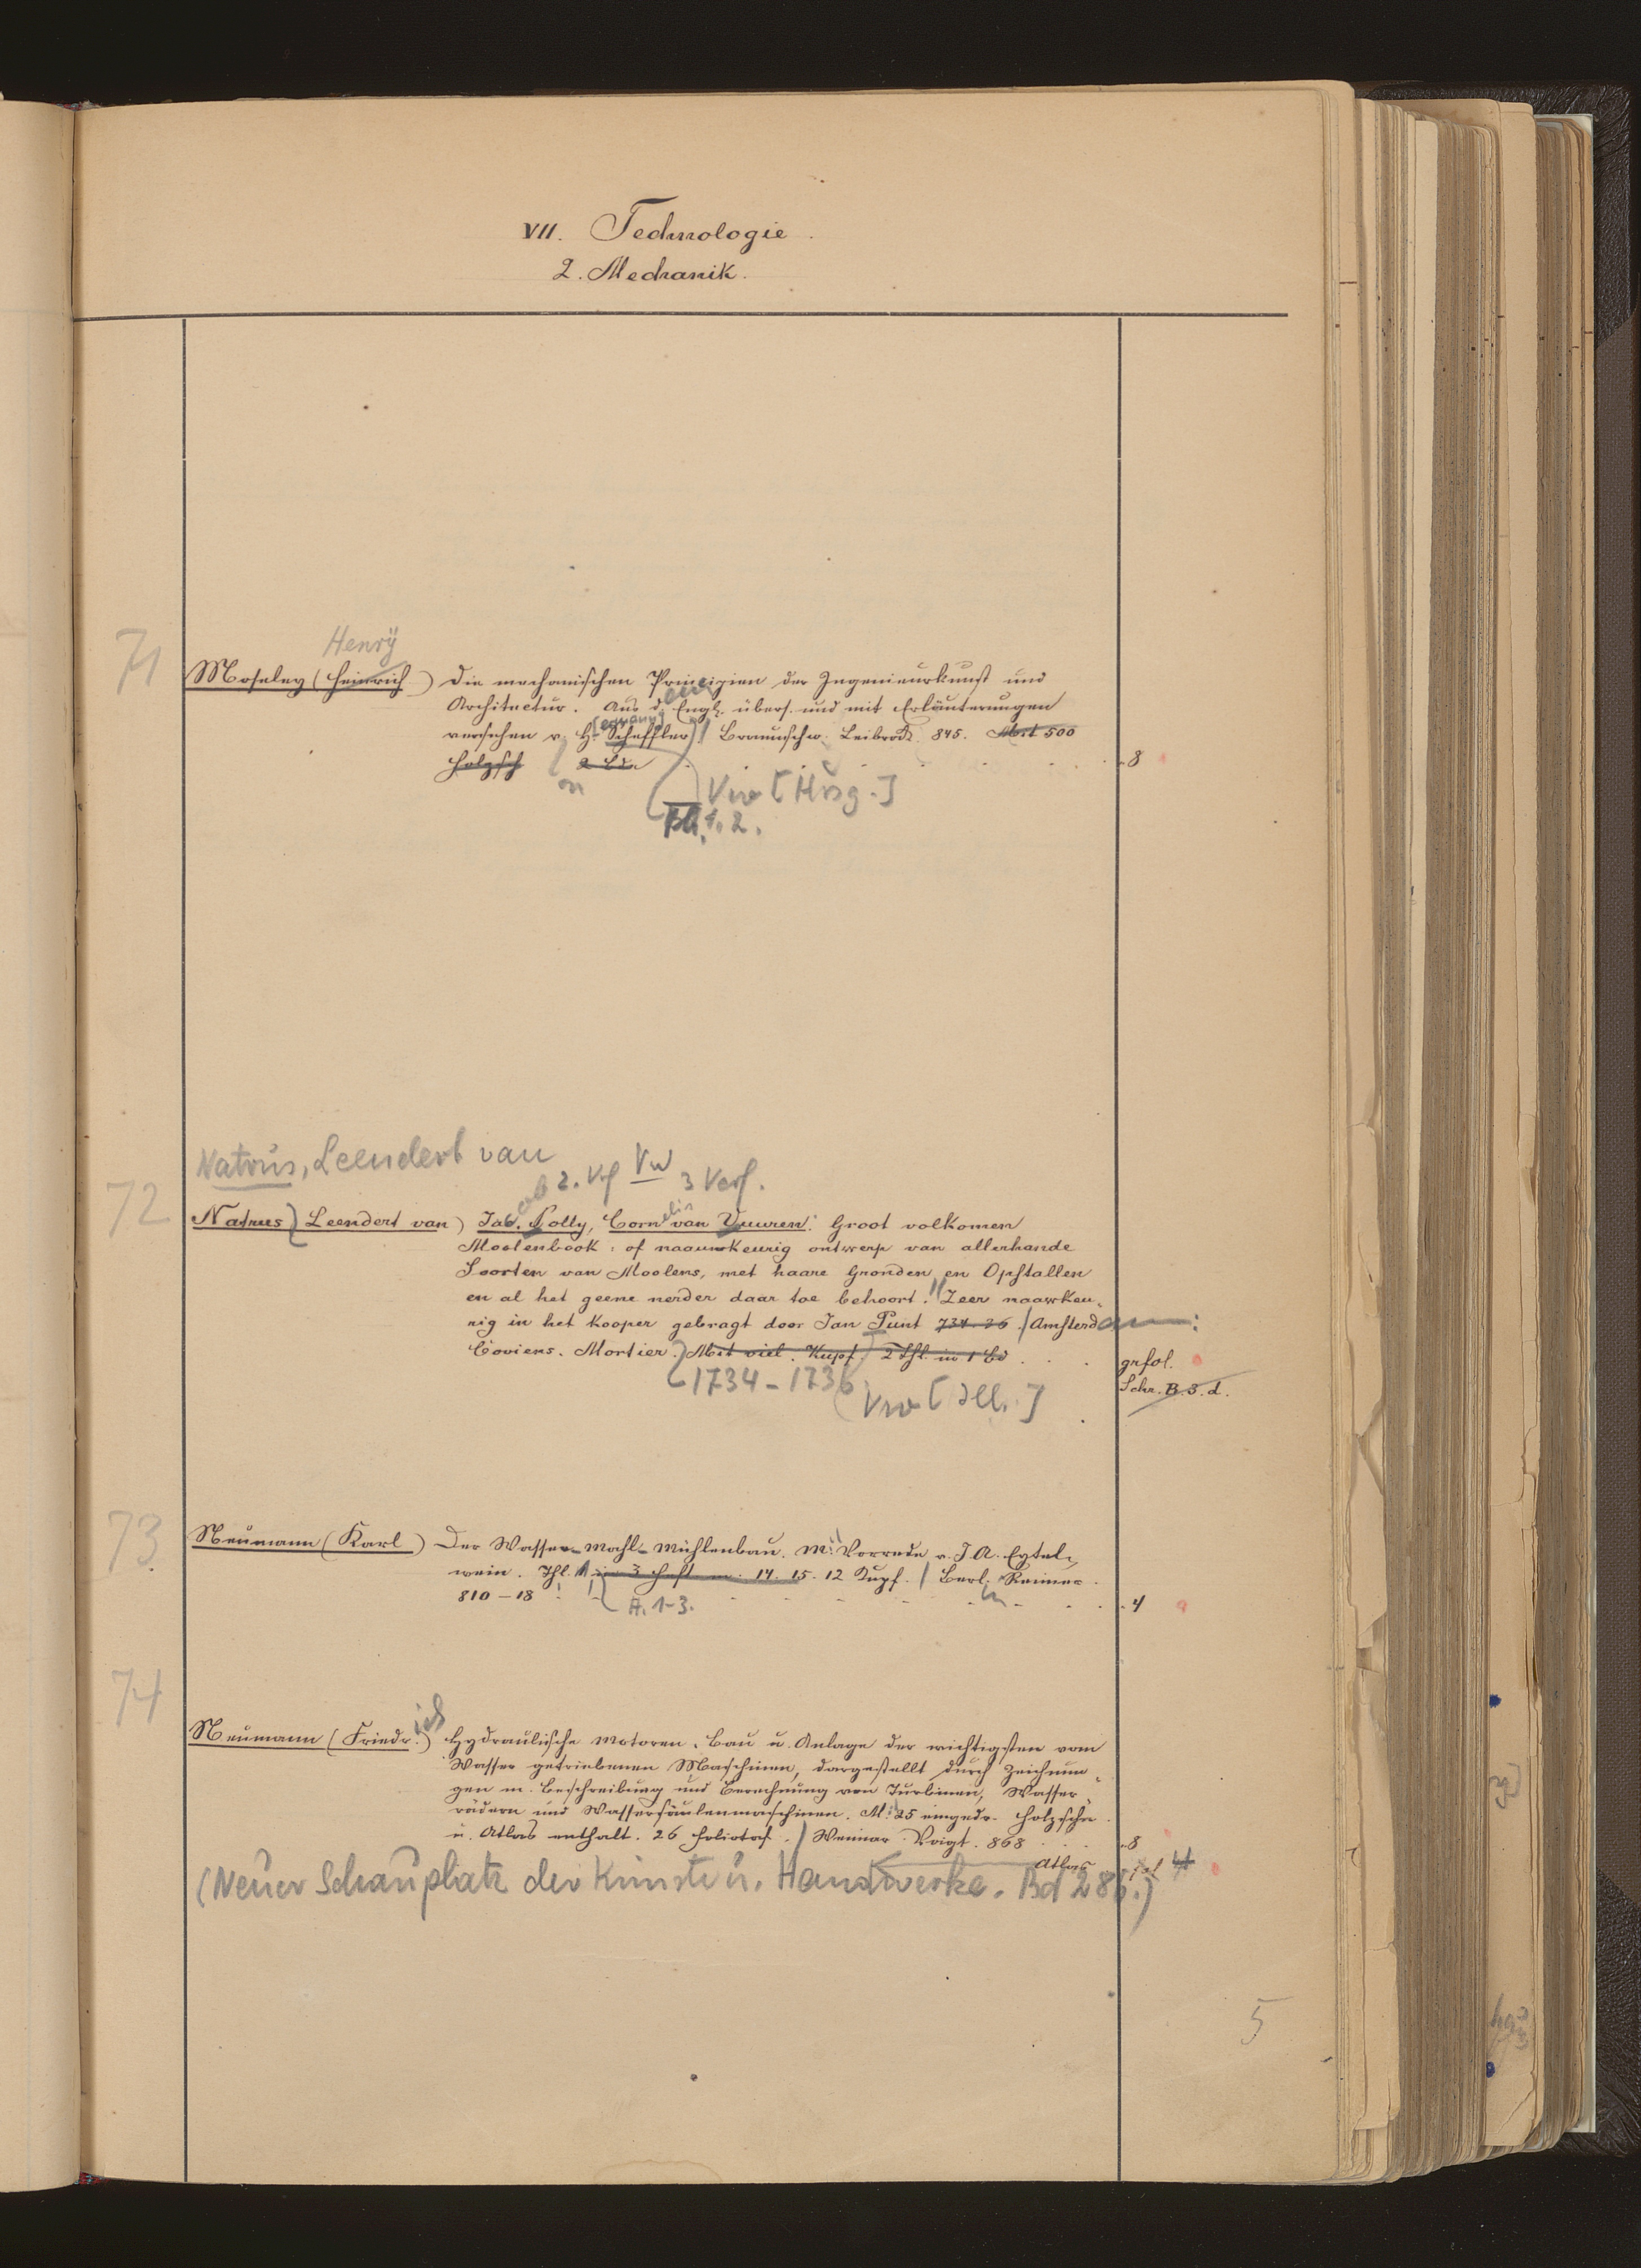 VII. Technologie.
2. Mechanik.
Henrÿ
71
Moseley (Heinrich) Die mechanischen Principien der Ingenieurkunst und
Architectur. Aus d. Engl. übers. und mit Erläuterungen
(ermann)
versehen v. H. Scheffler) / Braunschw. Leibrock. 845. Mit 500
Holzsch 2 Bde 8
Vw [Hrsg.]
Bd. 1. 2.
Natrus, Leendert van
2. Vf Vw 3 Verf.
72
Natrus) Leendert van) Jac. Polly, Cornelis van Vuuren: Groot volkomen
Moolenbook: of naauwkeurig ontwerp van allerhande
Soorten van Moolens, met haare Gronden en Opstallen
en al het geene verder daar toe behoort. Zeer naawkeu-
rig in het Kooper gebragt door Jan Punt 734-36. / Amsterdam:
Coviens. Mortier. Mit viel. Kupf. 2 Thl. in 1 Bd grfol.
1734-1736
Schr. B. 3. d.
Vw [Ill.]
73
Neumann (Karl) Der Wasser-Mahl-Mühlenbau. M. Vorrede v. J. A. Eytel-
wein. Thl. 1 in 3 Heft m. 14. 15. 12 Kupf. / Berl. Reimer.
810-18 4
H. 1-3.
74
Neumann (Friedrich) Hydraulische Motoren. Bau u. Anlage der wichtigsten vom
Wasser getriebenen Maschinen, dargestellt durch Zeichnun-
gen m. Beschreibung und Berechnung von Turbinen, Wasser-
rädern und Wassersäulenmaschinen. M. 25 eingedr. Holzschn.
u. Atlas enthalt. 26 Foliotaf. / Weimar. Voigt. 868 8
Atlas fol 4
(Neuer Schauplatz der Künste u. Handwerke. Bd 286.)
5